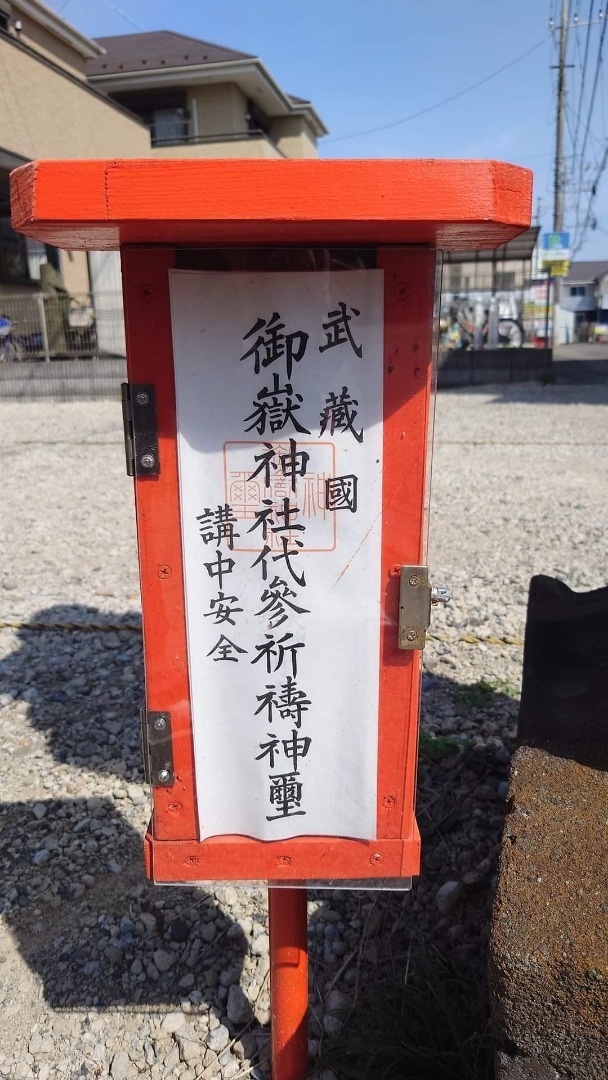 武藏國
御嶽神社代參祈禱神璽
講中安全